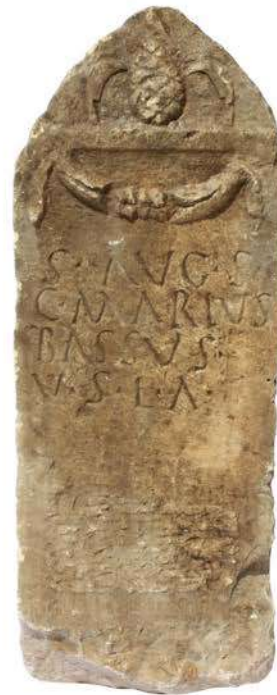 S · AVG · S
C · MARIVS
BASSVS
V · S · L · A ·